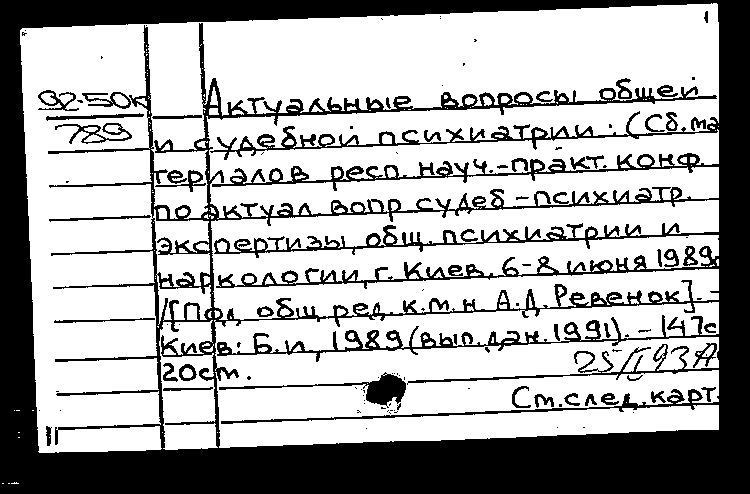 92-50к
789
Актуальные вопросы общей
и судебной психиатрии: (Сб. ма
териалов респ. науч.-практ. конф.
по актуал. вопр. судеб-психиатр.
экспертизы, общ. психиатрии и
наркологии, г. Киев, 6-8 июня 1989г
/[Под общ. ред. к.м.н. А.Д. Ревенок]. -
Киев: Б.и., 1989 (вып. дан. 1991). - 147с
20см.
См. след. карт.